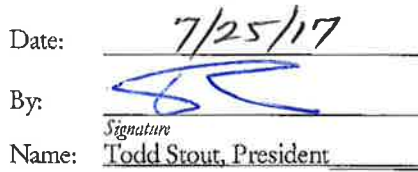 Date: 7/25/17
By:
Signature
Name: Todd Stout, President